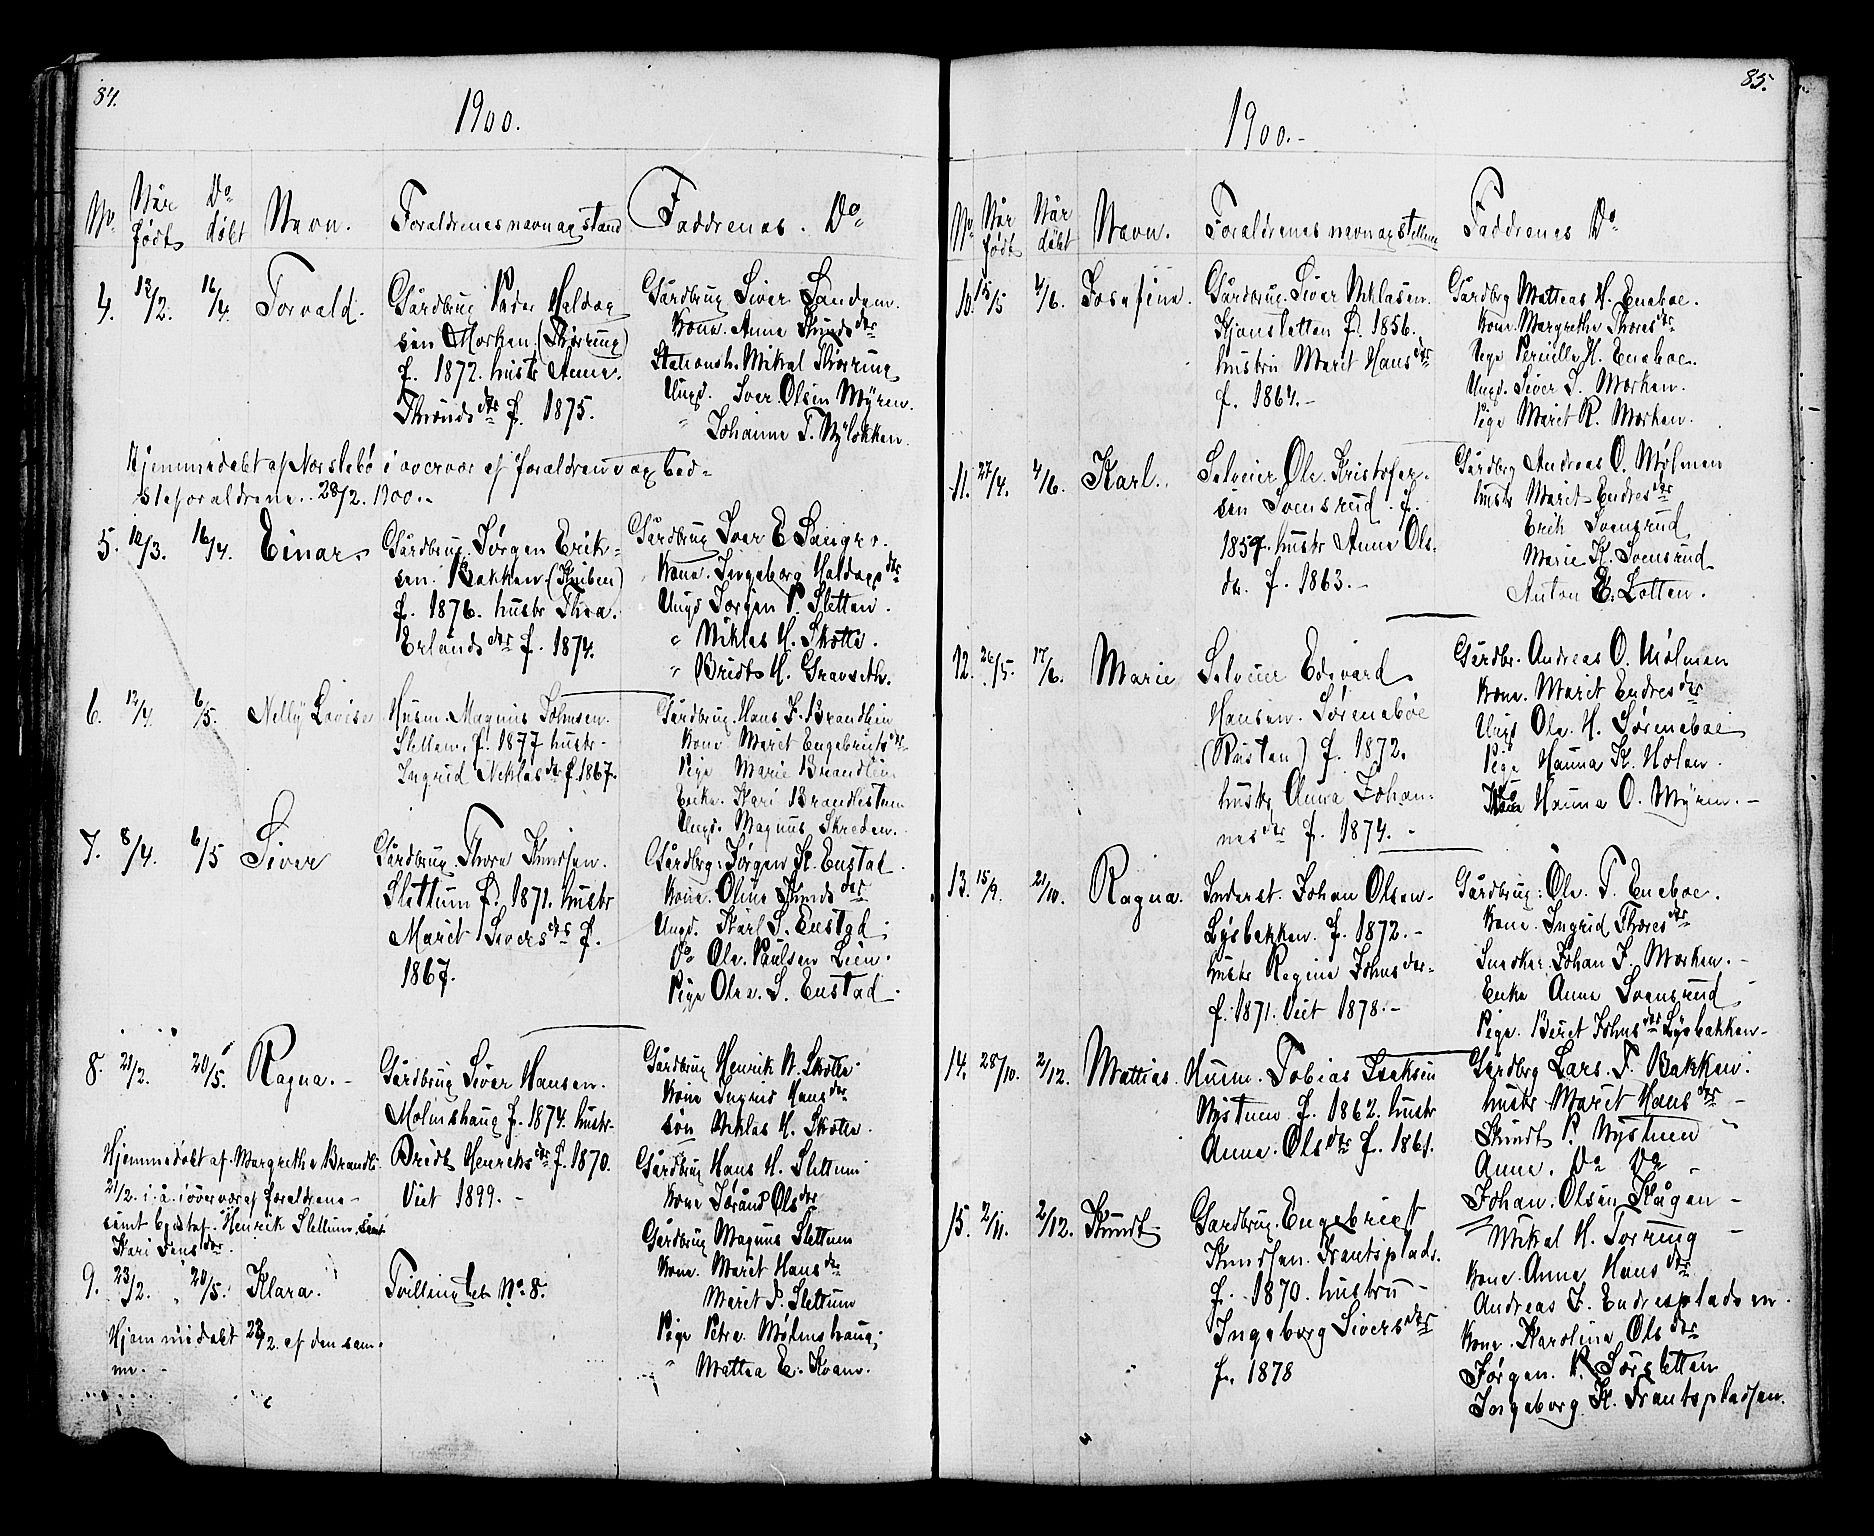 84.
1900.
No. Når født Do døbt Navn. Foraldrenes navn og stand Faddrenes. Do
4. 13/2. 16/4. Torvald. Gårdbrug Peder Haldog
sen Morken. (Thørring)
f. 1872. hustr Anne.
Thronds der f. 1875.
Gårdbrug Siver Sandem.
kone. Anne Knuds der
Stationsh. Mikal Thørring
Ungd. Iver Olsen Myren.
" Johanne T. Nyløkken.
Hjemmedøbt af Norstebø i overvær af foraldrene og bed-
steforaldrene. 28/2. 1900.
5. 12/3. 16/4. Einar Gårdbrug. Jørgen Erik-
sen. Bakken (Kniben)
f. 1876. hustr Thea.
Erlands der f. 1874.
Gårdbrug Iver E
kone. Ingeborg Haldogs der
Ungd Jørgen P. Sletten.
" Niklas H. Skotte.
" Bridt H. Gravseth.
6. 12/4. 6/5. Nelly Lovise Husm. Magnus Johnsen.
Slettum. f. 1877 hustr-
Ingrid Niklas dr f. 1867.
Gårdbrug. Hans J. Brandlien
kone Maret Engebrets der
Pige Marie Brandlien
Enke. Kari Brandlistuen
Ungd. Magnus Skreden.
7. 8/4. 6/5 Siver Gårdbrug. Thore Knudsen.
Slettum f. 1871. hustr
Maret Sivers der f.
1867.
Gårdbrg. Jørgen K. Enstad.
kone. Oline Knuds der
Ungd. Karl S. Enstad.
Do Ole. Paulsen Lien.
Pige Olea. S. Enstad.
8. 21/2. 20/5. Ragna. - Gårdbrug Siver Hansen.
Molmshaug f. 1874. hustr.
Bridt Henriks der f. 1870.
Viet 1899. -
Gårdbrug Henrik N. Skotte.
kone Ingrid Hans der
søn Niklas H. Skotte.
Gårdbrug Hans H. Slettum.
kone Jorånd Ols der
Gårdbrug Magnus Slettum
kone. Maret Hans der
Maret P. Slettum
Pige Petra. Mølmshaug;
" Mattea E. Kvam.
Hjemmedøbt af. Margrethe Brandli
21/2. i. å. i overvær af foraldrene -
samt Henrik Slettum, samt
Kari Jens der.
9. 23/2. 20/5. Klara. Tvilling tel No. 8.
Hjemmedøbt 23/2. af den sam-
me. -
85.
1900. -
No. Når født Når døbt Navn. Foraldrenes navn og stilling Faddrenes Do
10. 15/5 4/6. Josefine. Gårdbrug. Siver Niklasen.
Kjønsletten f. 1856.
hustru Maret Hans der
f. 1864. -
Gårdbrg Mattias H. Eneboe.
kone. Margrethe Thores der
Pige Pernille H. Eneboe.
Ungd. Siver J. Morken.
Pige Maret R. Morken.
11. 27/4. 4/6. Karl. Selveier Ole. Kristofer-
sen Svensrud. f.
1857. hustr Anne Ols-
dr. f. 1863. -
Gårdbrg Andreas O. Mølmen
hustr Maret Endres der
Erik Svensrud
Marie K. Svensrud
Anton E. Lotten.
12. 26/5. 17/6. Marie Selveier Edevard
Hansen. Søreneboe
(Rusten) f. 1872.
hustr Anna Johan-
nes der f. 1874. -
Gårdbr. Andreas O. Mølmen
kone. Maret Endres der
Ungd Ole. H. Søreneboe
Pige Hanna K. Holen.
Hanna O. Myren. -
13. 15/9. 21/10. Ragna. Inderst. Johan Olsen-
Lysbakken. f. 1872. -
hustr Regine Johns der-
f. 1871. Viet 1878. -
Gårdbrug: Ole. T. Eneboe.
kone. Ingrid Thores der
Snedker. Johan J. Morken. -
Enke Anne Svensrud -
Pige. Beret Johns der Lysbakken-
14. 28/10. 2/12. Mattias. Husm. Tobias Isaksen
Nystuen f. 1862. hustr
Anne. Ols der f. 1861.
Gårdbrg Lars. T. Bakken.
hustr Maret Hans der -
Knudt P. Nystuen "
Anne. Do Do -
Johan. Olsen Skågen -
15. 2/11. 2/12. Knudt Gardbrug. Engebriet
Knudsen. Frantsplads.
f. 1870. hustru -
Ingeborg Sivers der
f. 1878
Mikal H. Torring -
kone. Anne Hans der
Andreas J. Endrespladsen.
kone. Karoline Ols der
Jørgen. P. Sørsletten
Ingeborg K. Frantspladsen.